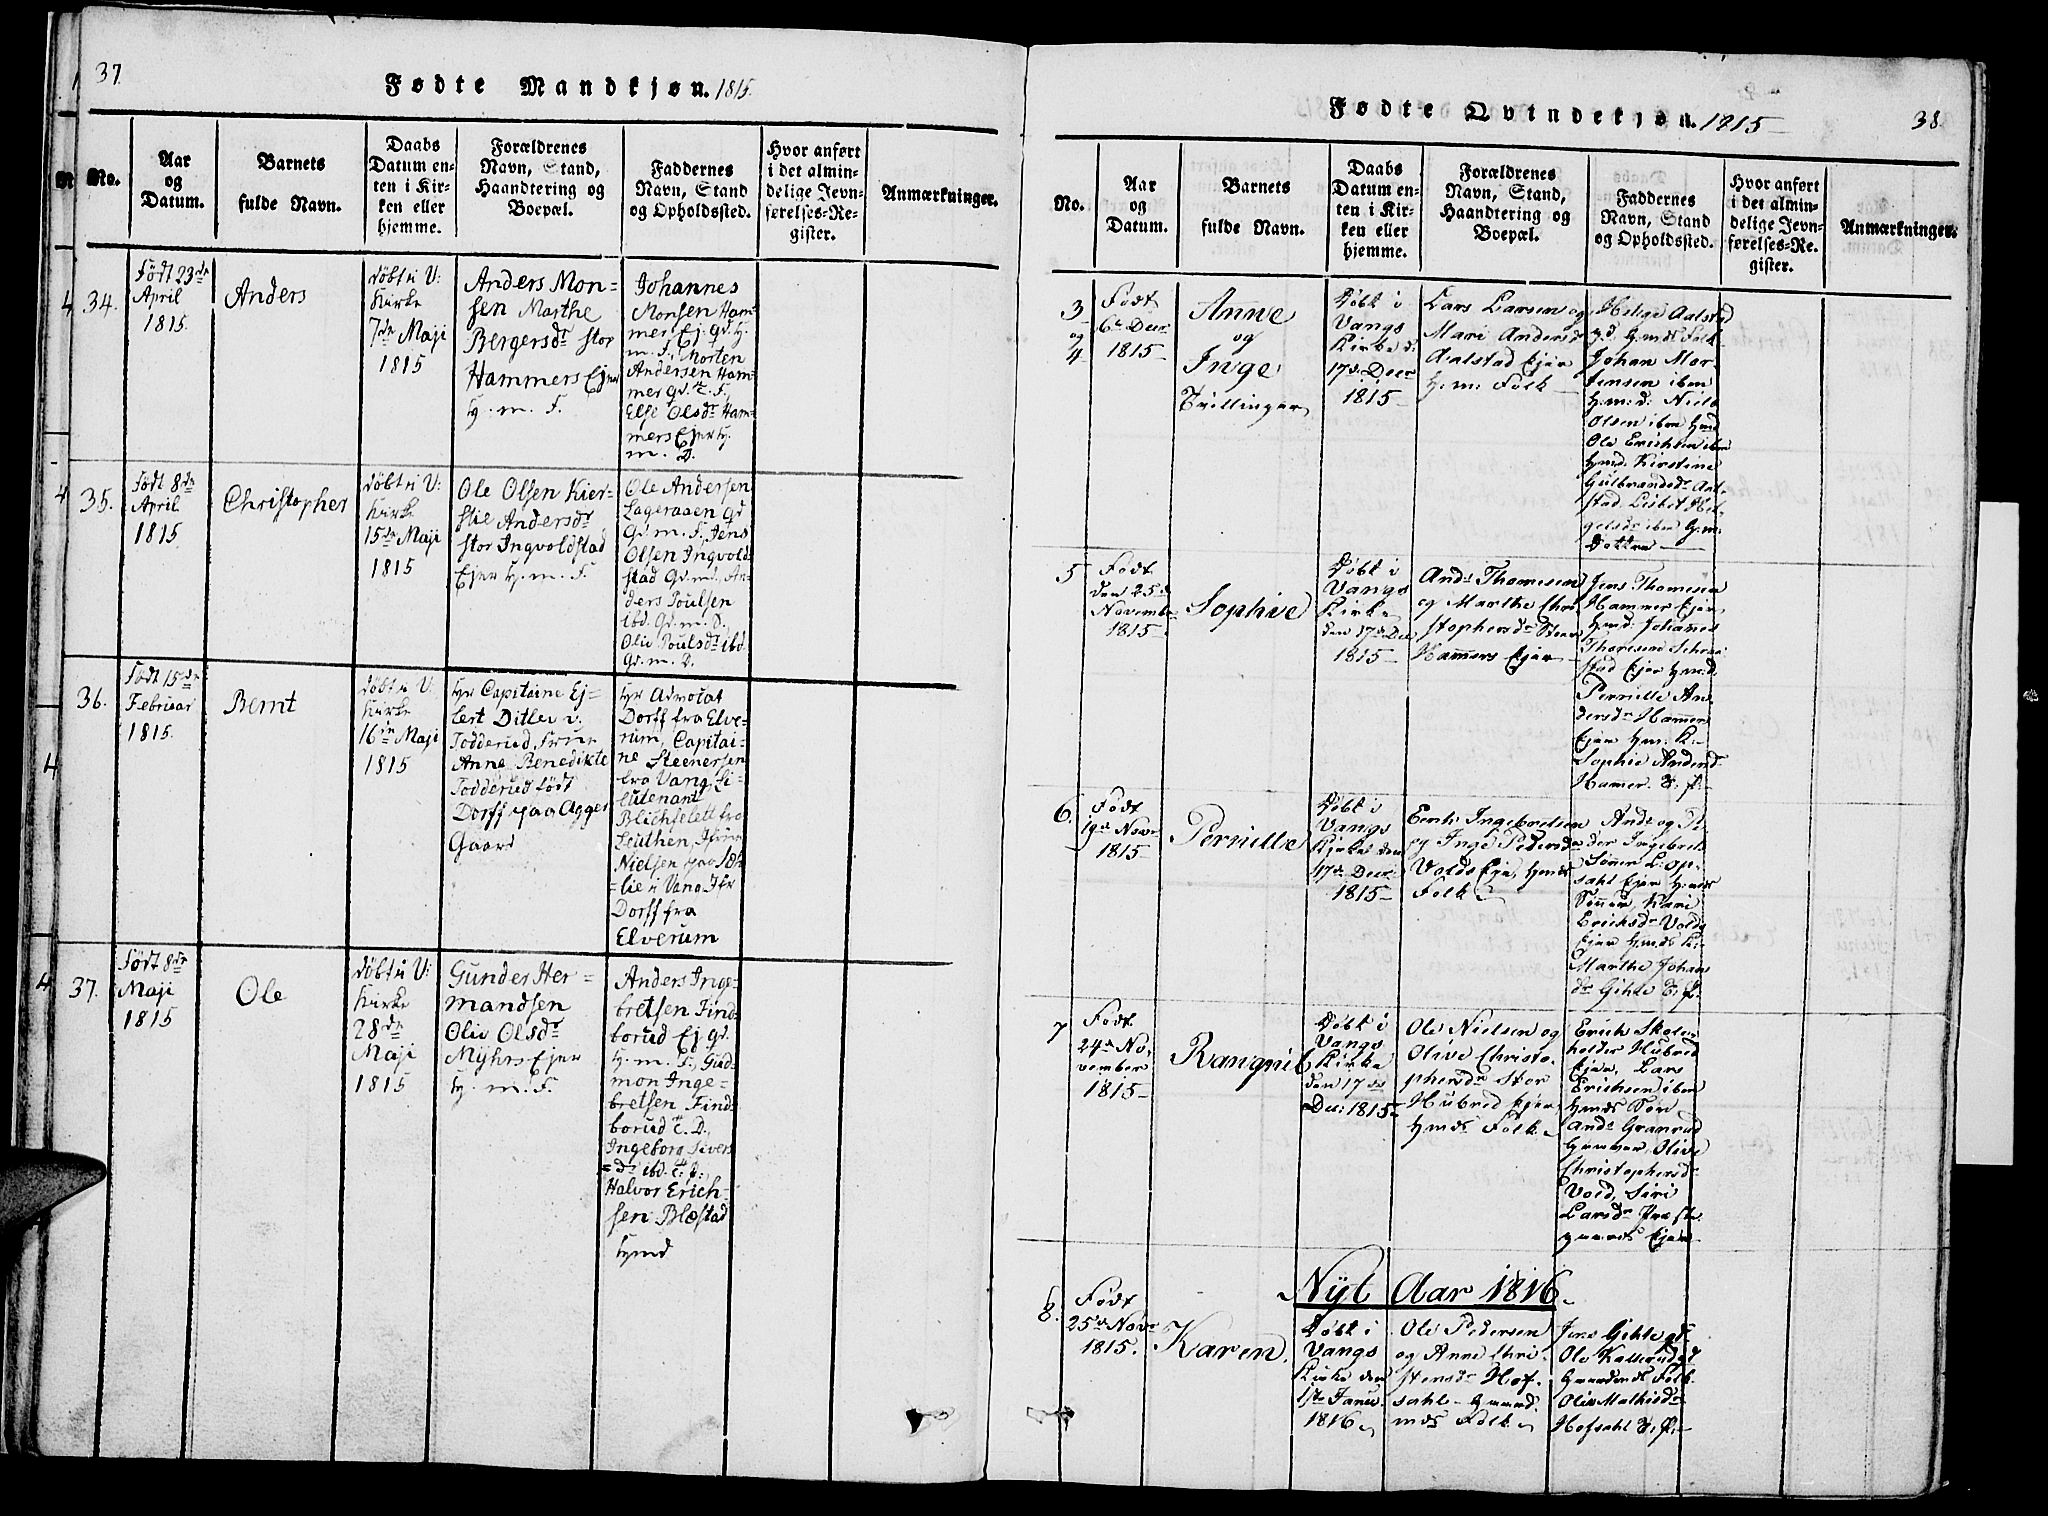 37
Fødte Mandkjøn. 1815.
No.
Aar
og
Datum.
Barnets
fulde Navn.
Daabs
Datum en-
ten i Kir-
ken eller
hjemme.
Forældrenes
Navn, Stand,
Haandtering og
Boepæl.
Faddernes
Navn, Stand
og Opholdssted.
Hvor anført
i det almin-
delige Jevn-
førelses-Re-
gister.
Anmærkninger.
34.
Født 23de
April
1815.
Anders
døbt i V:
Kirke
7de Maji
1815
Anders Mon-
sen Marthe
Bergersdr Stor
Hammers Ejer
H. m. F.
Johannes
Monsen Ham-
mer Ej. Gd. H.
m. F., Morten
Andersen Ham-
mer Gd. C. F.
Else Olsdr Ham-
mers Ejer H.
m. D.
35.
Født 8de
April
1815
Christopher
døbt i V:
Kirke
15de Maji
1815
Ole Olsen Kier-
stie Andersdr
Stor Ingvoldstad
Ejer H. m. F.
Ole Andersen
Lageraaen Gd
Gd. m. F. Jens
Olsen Ingvold-
stad Gd. md. An-
ders Poulsen
ibd. Gd. m. S.
Oliv Poulsdr ibd.
Gd. m. D.
36.
Født 15de
Februar
1815.
Bernt
døbt i V:
Kirke
16de Maji
1815
Hr Capitaine Ej-
lert Ditlev v.
Todderud, Frue
Anne Benedikte
Todderud født
Dorff paa Agger
Gaard
Hr Advocat
Dorff fra Elve-
rum, Capitai-
ne Steenersen
fra Vang, Li-
eutenant
Blichfelett fra
Leuthen, Jfrue
Nielsen paa Sæ-
lie i Vang Jfr
Dorff fra
Elverum
37.
Født 8de
Maji
1815
Ole
døbt i V:
Kirke
28de
Maji
1815
Gunder Her-
mandsen
Oliv Olsdr
Myhrs Ejer
H. m. F.
Anders Inge-
bretsen Find-
borud Ej. Gd.
H. m. F., Gud-
mon Inge-
bretsen Find-
borud C. D.,
Ingeborg Sivers
dr ibd. C. D.
Halvor Erich-
sen Blæstad
Hmd
Fødte Qvindekjøn. 1815
38
No.
Aar
og
Datum.
Barnets
fulde Navn.
Daabs
Datum en-
ten i Kir-
ken eller
hjemme.
Forældrenes
Navn, Stand,
Haandtering og
Boepæl.
Faddernes
Navn, Stand
og Opholdssted.
Hvor anført
i det almin-
delige Jevn-
førelses-Re-
gister.
Anmærkninger.
3
og
4
Født
6te Decr
1815
Anne
og
Inge
Tvillinger
Døbt i
Vangs
Kirke d:
17de Decr
1815
Lars Larsen og
Mari Andersdr
Aalstad Ejer
H: m: Folk
Helge Aalstad
g.d. Hmds Folk
Johan Mor-
tensen iben
H:m:d: Niels
Olsen iben Hmd
Ole Erichsen iben
Hmd. Kirstene
Gulbrandsdr Aal-
stad Lisbet Hel-
gelsdr iben H:m:
Dottre
5
Født
den 25de
Novembr
1815
Sophie
Døbt i
Vangs
Kirke
den 17de Dec
1815
Ands Thomesen
og Marthe Chri-
stophersdr Stor
Hamers Ejer
Jens Thomesen
Hammer Ejer
Hmd: Johannes
stad Ejer Hmd.
Pernille An-
dersdr Hamer
Ejer Hm: K:
Sophie Andersd.
Hamer. E. f.
6.
Født
19de Novr
1815
Pernille
Døbt i
Vangs
Kirke den
17de Decr
1815
Erich Ingebretsen
og Inge Pedersdr
Volds Ejer, Hmds
Folk
Ands og Pe-
der Ingebret-
Sønner L: Op-
sahl Ejer H:mds
Sønner, Kari
Ericksdr Volds
Ejer Hmds K:
Marthe Johans
dr Gihle E. f.
7
Født
24de No-
vember
1815
Rangnil
Døbt i
Vangs
Kirke
den 17de
Dec: 1815
Ole Nielsen og
Olive Christo-
phersdr Stor
Hubred Ejer,
Hmds Folk
Erich Skole-
holder Hubred
Ejer, Lars
Erichsen iben
Hmds Søn
Ands Granrud
Olive
Christophersd.
Vold, Siri
Larsdr Præste-
gaards Ejer
Nyt Aar 1816.
8.
Født
25de Novr
1815.
Karen.
Døbt i
Vangs
Kirke den
1ste Janu
1816
Ole Pedersen
og Anne Chri-
stensdr Hof-
sahl - Gaard-
mds Folk
Jens Gihle gd.
Ole Kallerud gd
Gaardmds Folk
Olia Mathisdr
Hofsahl E. f.